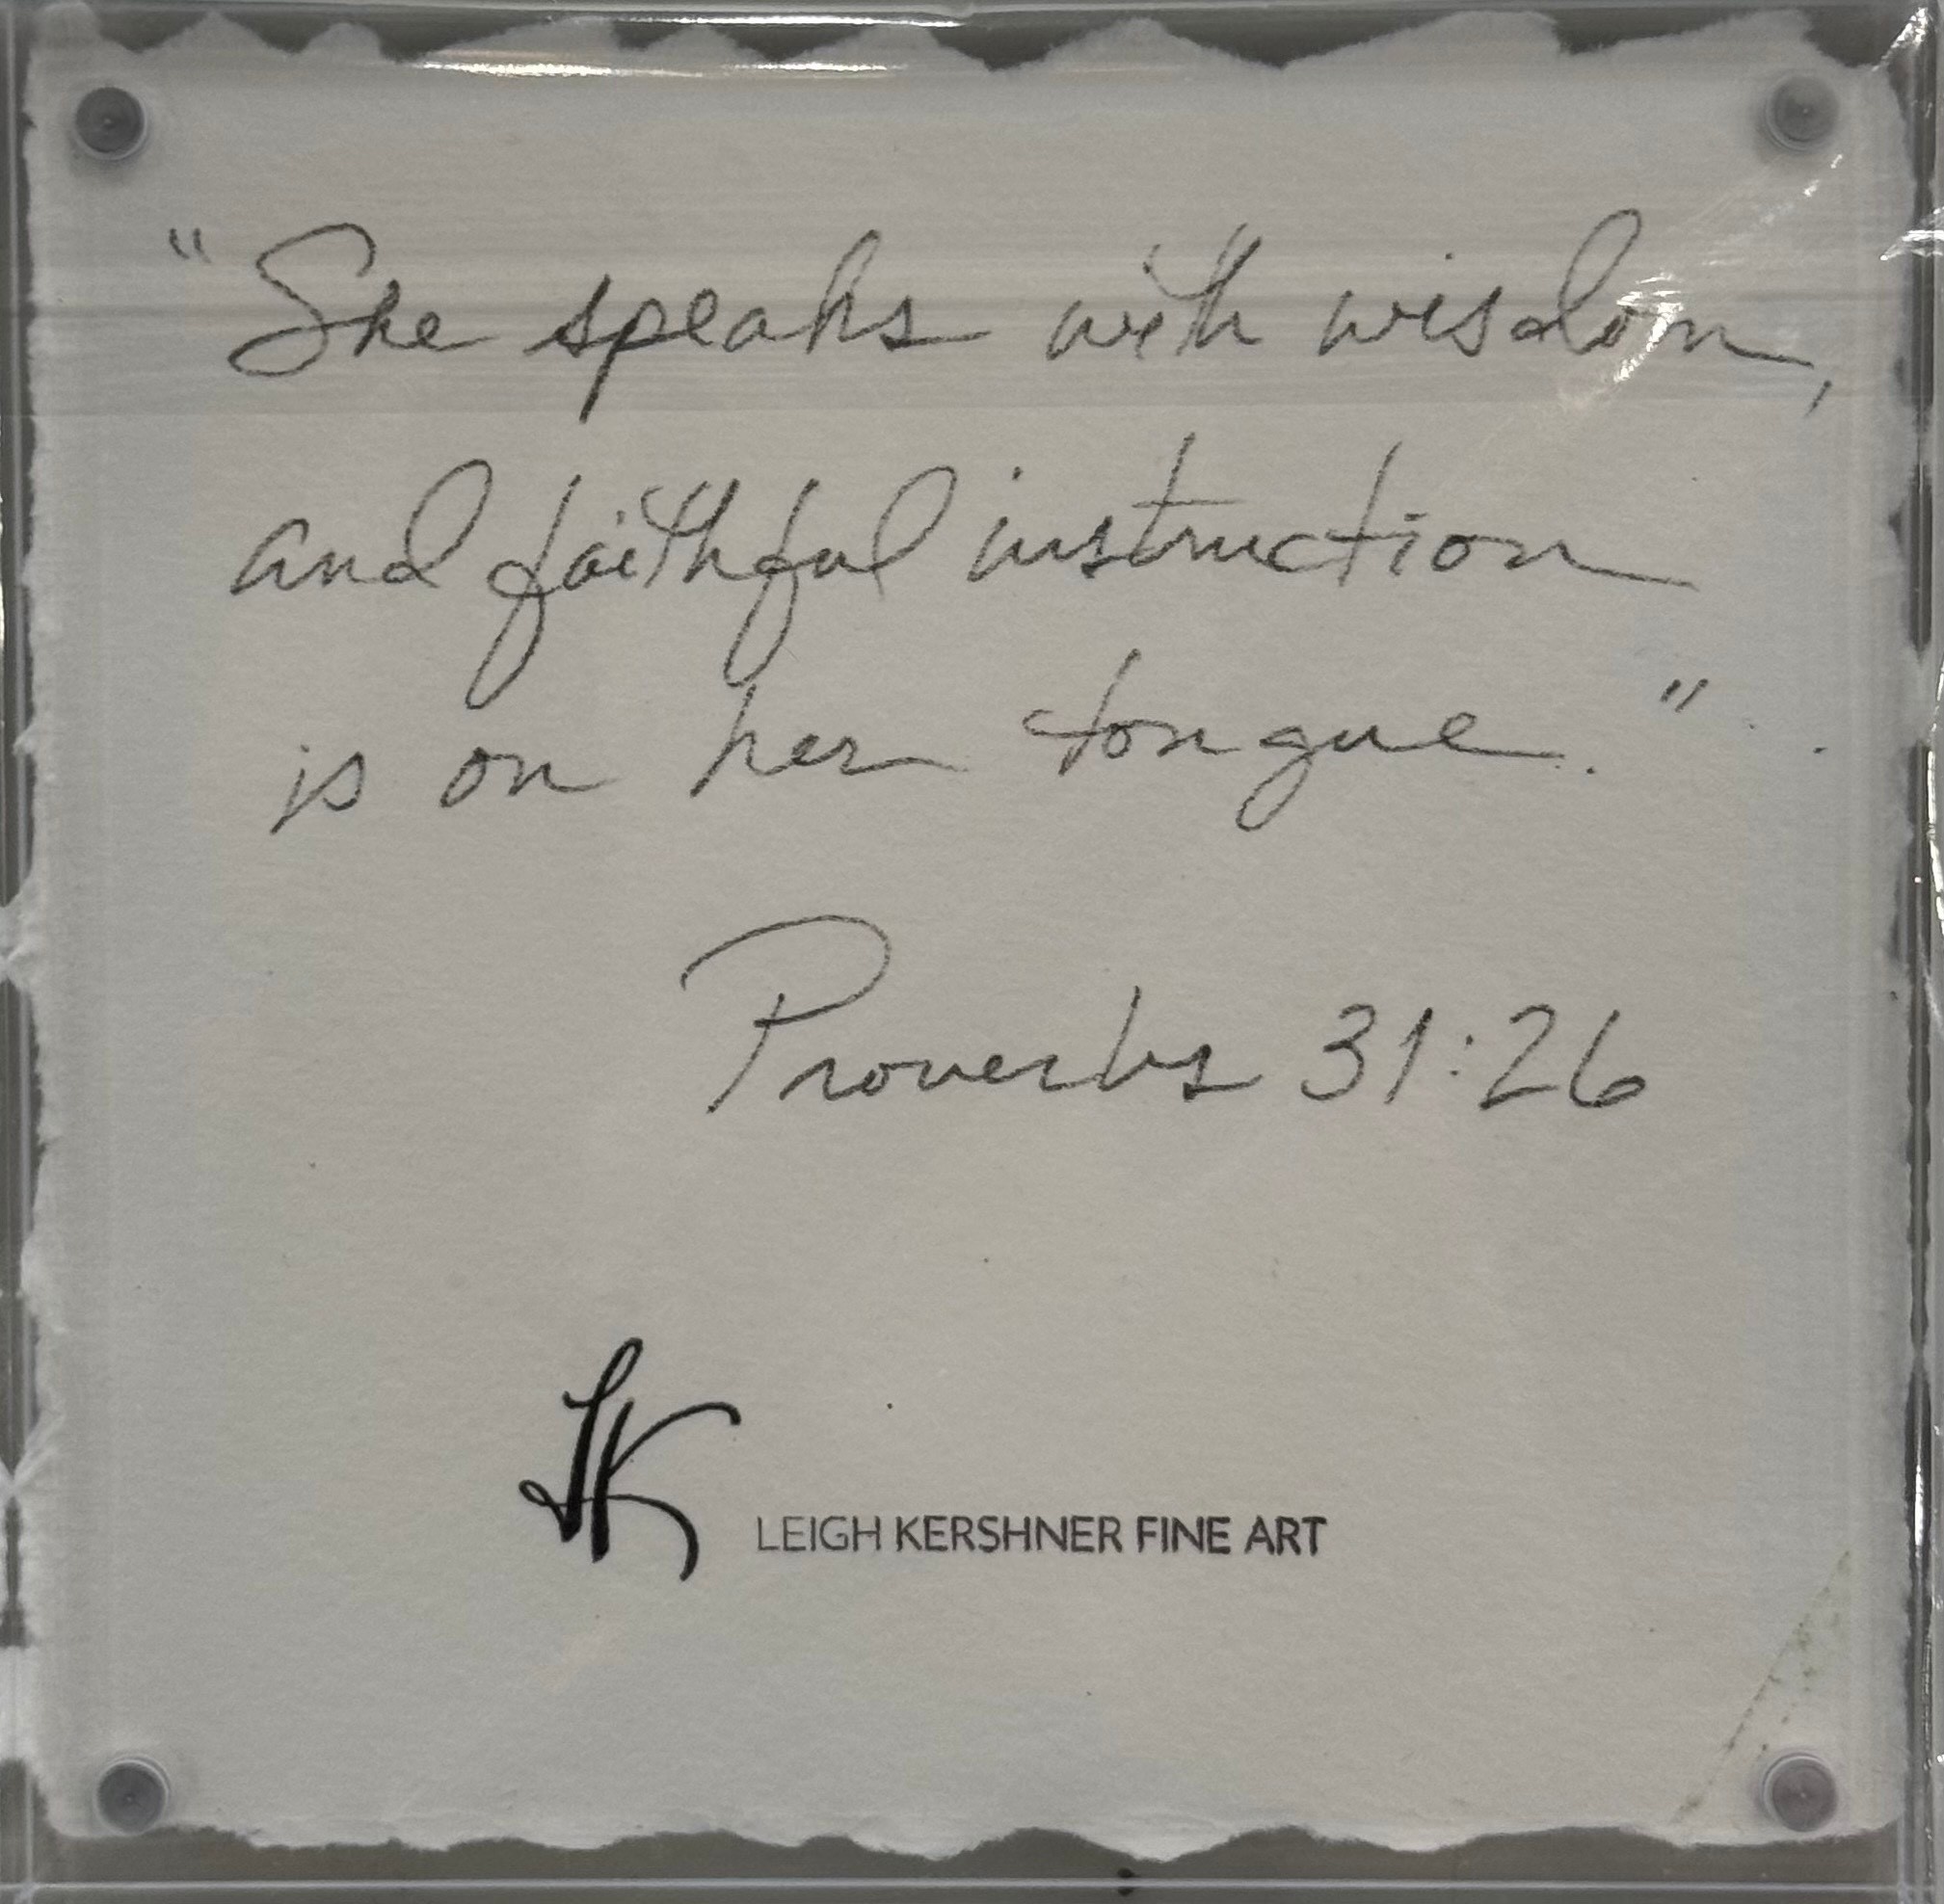 "She speaks with wisdom,
and faithful instruction
is on her tongue."
Proverbs 31:26
LK
LEIGH KERSHNER FINE ART